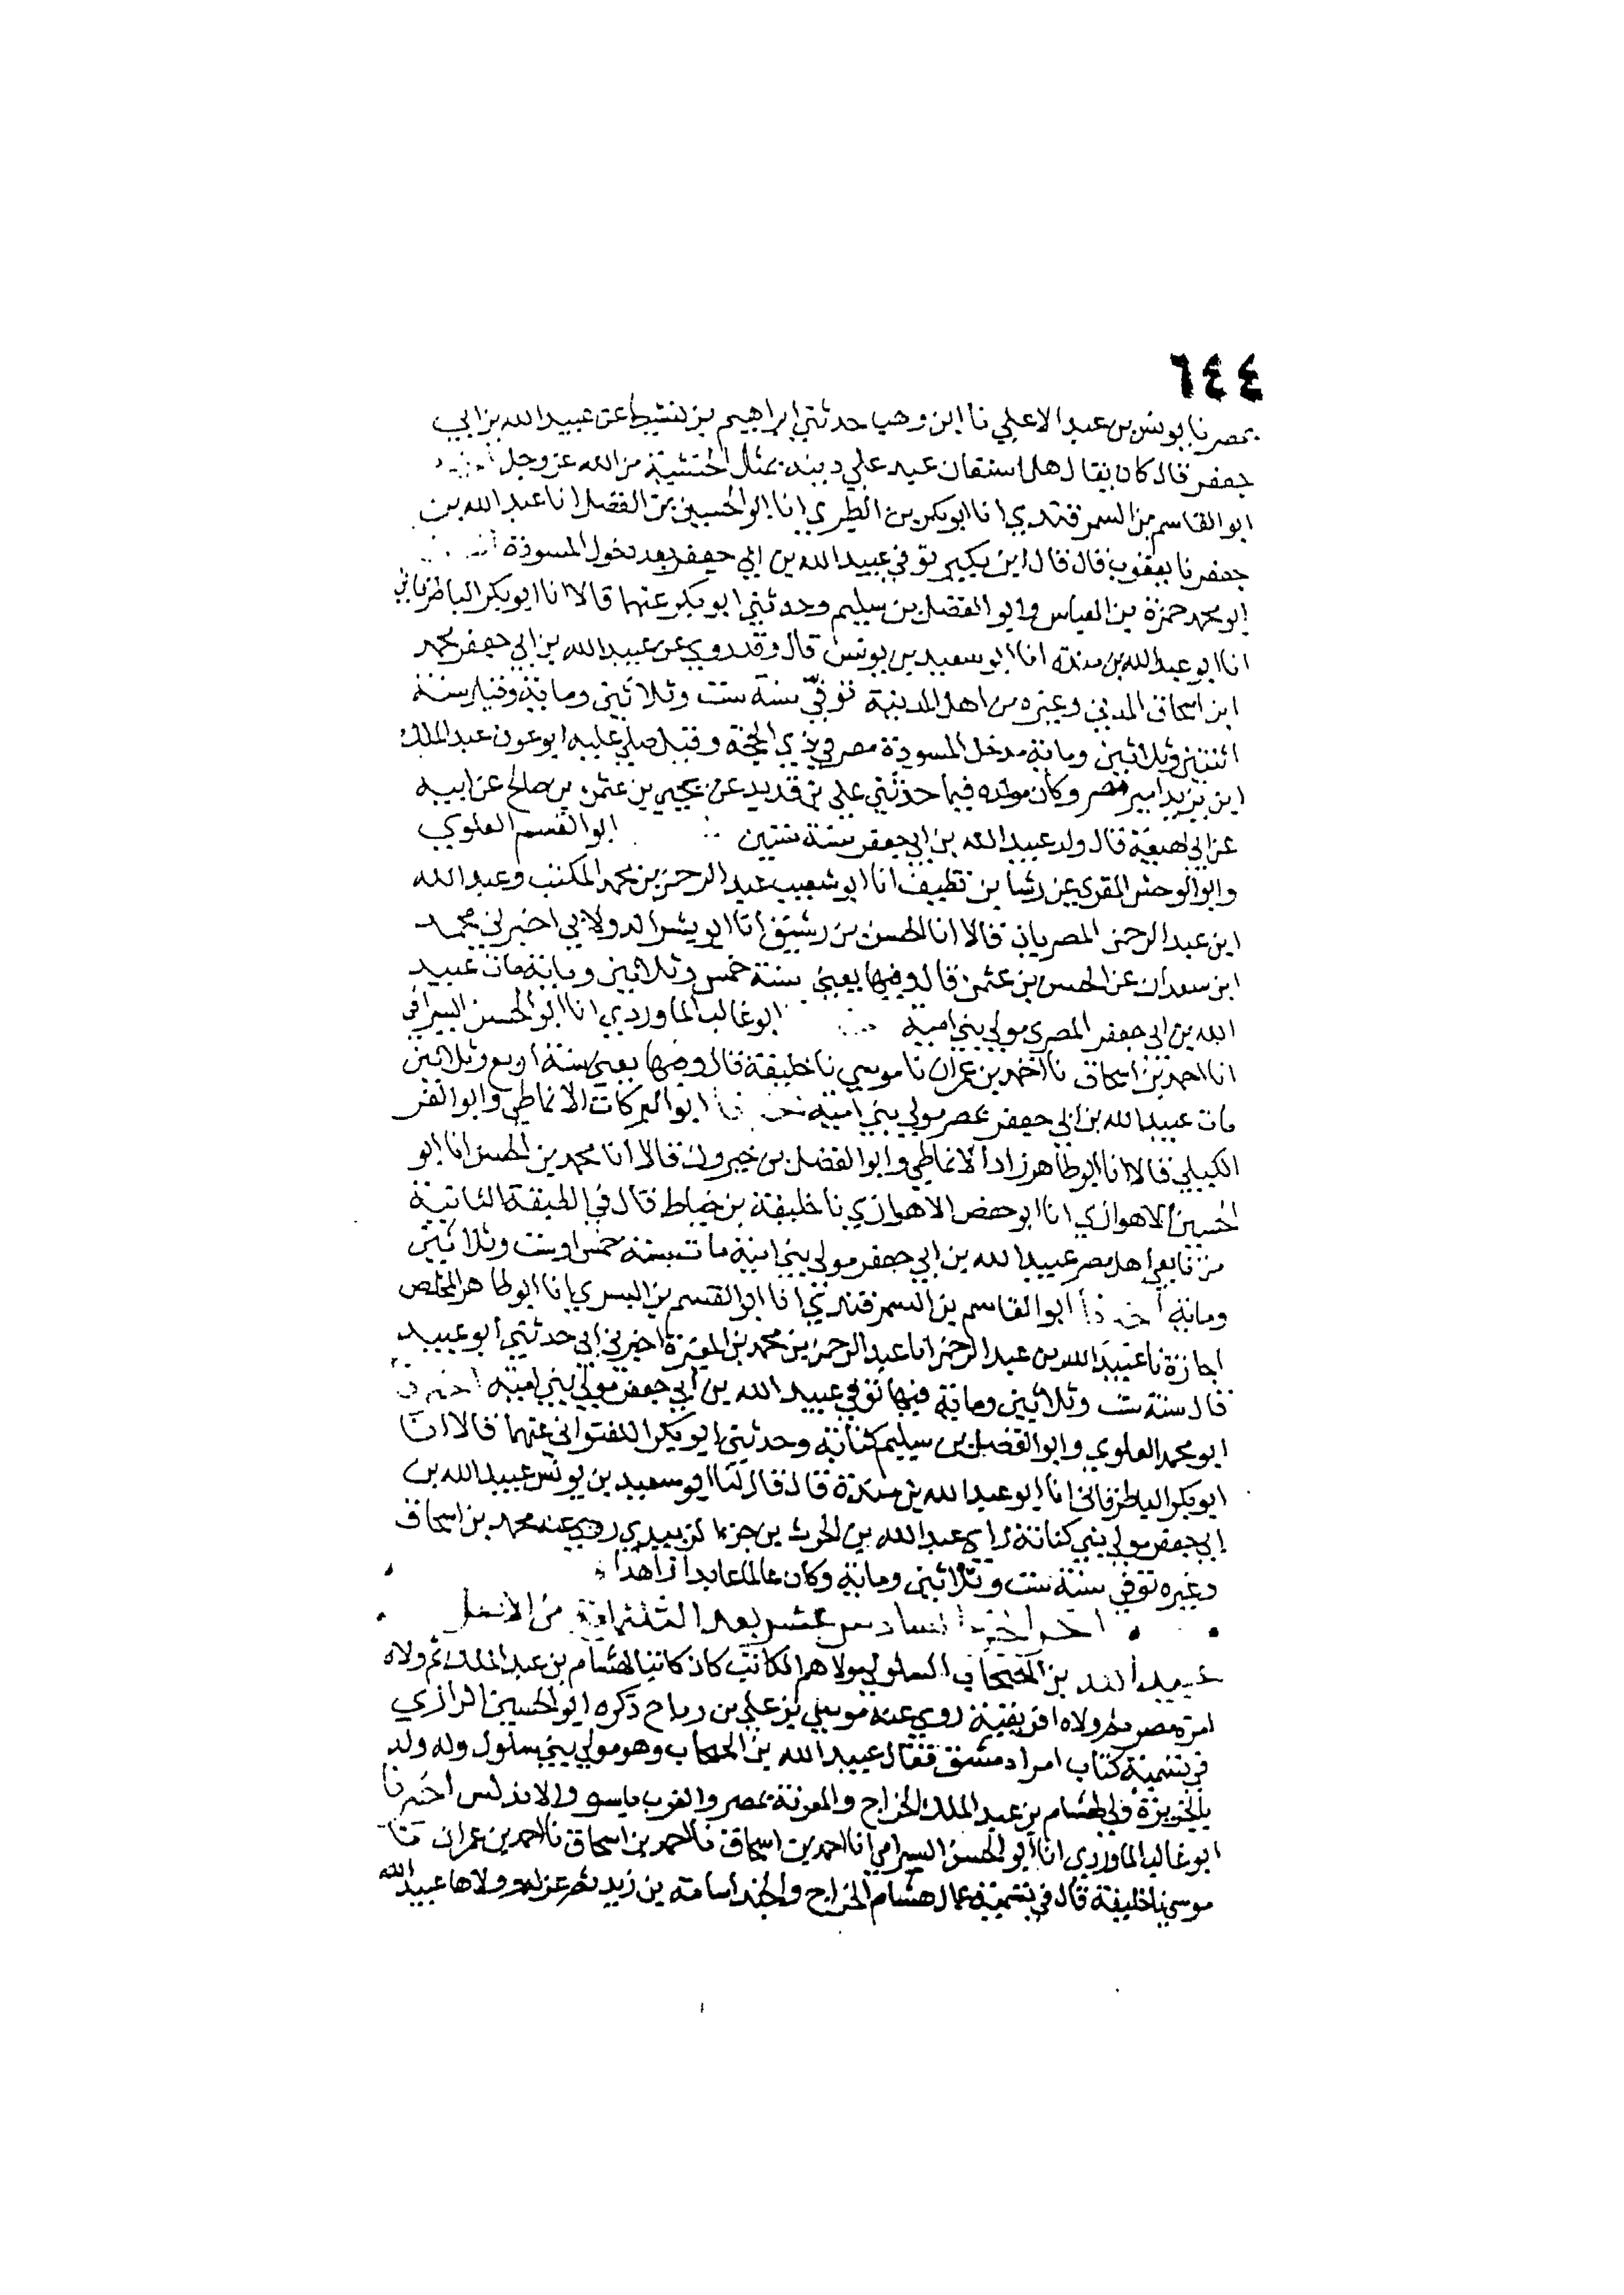 ٦٤٤
بمصر نا يونس بن عبد الاعلي نا ابن وهب حدثني ابراهيم بن نشيط عن عبيد الله بن ابي
جعفر قال كان يقال هل استعان عبد علي دينه بمثل الخشية من الله عز وجل
ابو القاسم بن السمرقندي انا ابو بكر بن الطبري انا ابو الحسين بن الفضل انا عبد الله بن
جعفر نا يعقوب قال قال ابن بكير توفي عبيد الله بن ابي جعفر بعد دخول المسودة
ابو محمد حمزة بن العباس وابو الفضل بن سليم وحدثني ابو بكر عنهما قالا انا ابو بكر الباطرقاني
انا ابو عبد الله بن مندة انا ابو سعيد بن يونس قال وقد روي عن عبيد الله بن ابي جعفر محمد
ابن اسحاق المدني وغيره من اهل المدينة توفي سنة ست وثلاثين وماية وقيل سنة
اثنتين وثلاثين وماية مدخل المسودة مصر في ذي الحجة وقيل صلي عليه ابو عون عبد الملك
ابن يزيد امير مصر وكان مولده فيما حدثني علي بن قديد عن يحيي بن عثمن بن صالح عن ابيه
عن ابن لهيعة قال ولد عبيد الله بن ابي جعفر سنة ستين ابو القسم العلوي
وابو الوحش المقري عن رشا بن نظيف انا ابو شعيب عبد الرحمن بن محمد المكتب وعبد الله
ابن عبد الرحمن المصريان قالا انا الحسن بن رشيق انا ابو بشر الدولابي اخبرني محمد
ابن سعدان عن الحسن بن عثمن قال وفيها يعني سنة خمس وثلاثين وماية مات عبيد
الله بن ابي جعفر المصري مولي بني امية ابو غالب الماوردي انا ابو الحسن السيرافي
انا احمد بن اسحاق نا احمد بن عمران نا موسي نا خليفة قال وفيها يعني سنة اربع وثلاثين
مات عبيد الله بن ابي جعفر بمصر مولي بني امية ابو البركات الانماطي وابو العز
الكيلي قالا انا ابو طاهر زاد الانماطي وابو الفضل بن خيرون قالا انا محمد بن الحسن انا ابو
الحسين الاهوازي انا ابو حفص الاهوازي نا خليفة بن خياط قال في الطبقة الثانية
من تابعي اهل مصر عبيد الله بن ابي جعفر مولي بني امية مات سنة خمس او ست وثلاثين
وماية ابو القاسم بن السمرقندي انا ابو القسم بن البسري انا ابو طاهر المخلص
اجازة نا عبيد الله بن عبد الرحمن انا عبد الرحمن بن محمد بن المغيرة اخبرني ابي حدثني ابو عبيد
قال سنة ست وثلاثين وماية فيها توفي عبيد الله بن ابي جعفر مولي بني امية
ابو محمد العلوي وابو الفضل بن سليم كتابة وحدثني ابو بكر اللفتواني عنهما قالا انا
ابو بكر الباطرقاني انا ابو عبد الله بن مندة قال قال لنا ابو سعيد بن يونس عبيد الله بن
ابي جعفر مولي بني كنانة راي عبد الله بن الحرث بن جزء الزبيدي روي عنه محمد بن اسحاق
وغيره توفي سنة ست وثلاثين وماية وكان عالما عابدا زاهدا
السادس عشر بعد الثلثماية من الاصل
عبيد الله بن الحبحاب السلولي مولاهم الكاتب كان كاتبا لهشام بن عبد الملك ثم ولاه
امرة مصر ثم ولاه افريقية روي عنه موسي بن علي بن رباح ذكره ابو الحسين الرازي
في تسمية كتاب امراء دمشق فقال عبيد الله بن الحبحاب وهو مولي بني سلول وله ولد
بالجزيرة ولي لهشام بن عبد الملك الخراج والمعونة بمصر والغرب والاندلس اخبرنا
ابو غالب الماوردي انا ابو الحسن السيرافي انا احمد بن اسحاق نا احمد بن اسحاق نا احمد بن عمران نا
موسي نا خليفة قال في تسمية عمال هشام الخراج والجند اسامة بن زيد ثم عزله وولاها عبيد الله